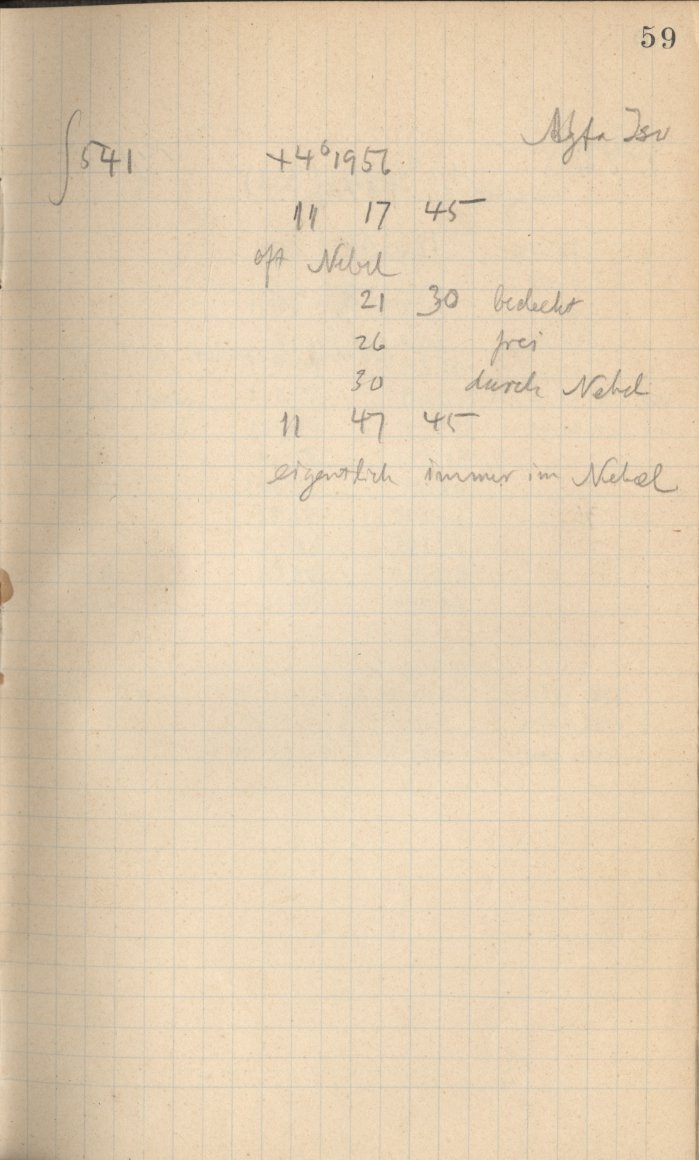 59
Agfa Iso
∫541 +4⁰1956
11 17 45
oft Nebel
21 30 bedeckt
26 frei
30 durch Nebel
11 47 45
eigentlich immer im Nebel